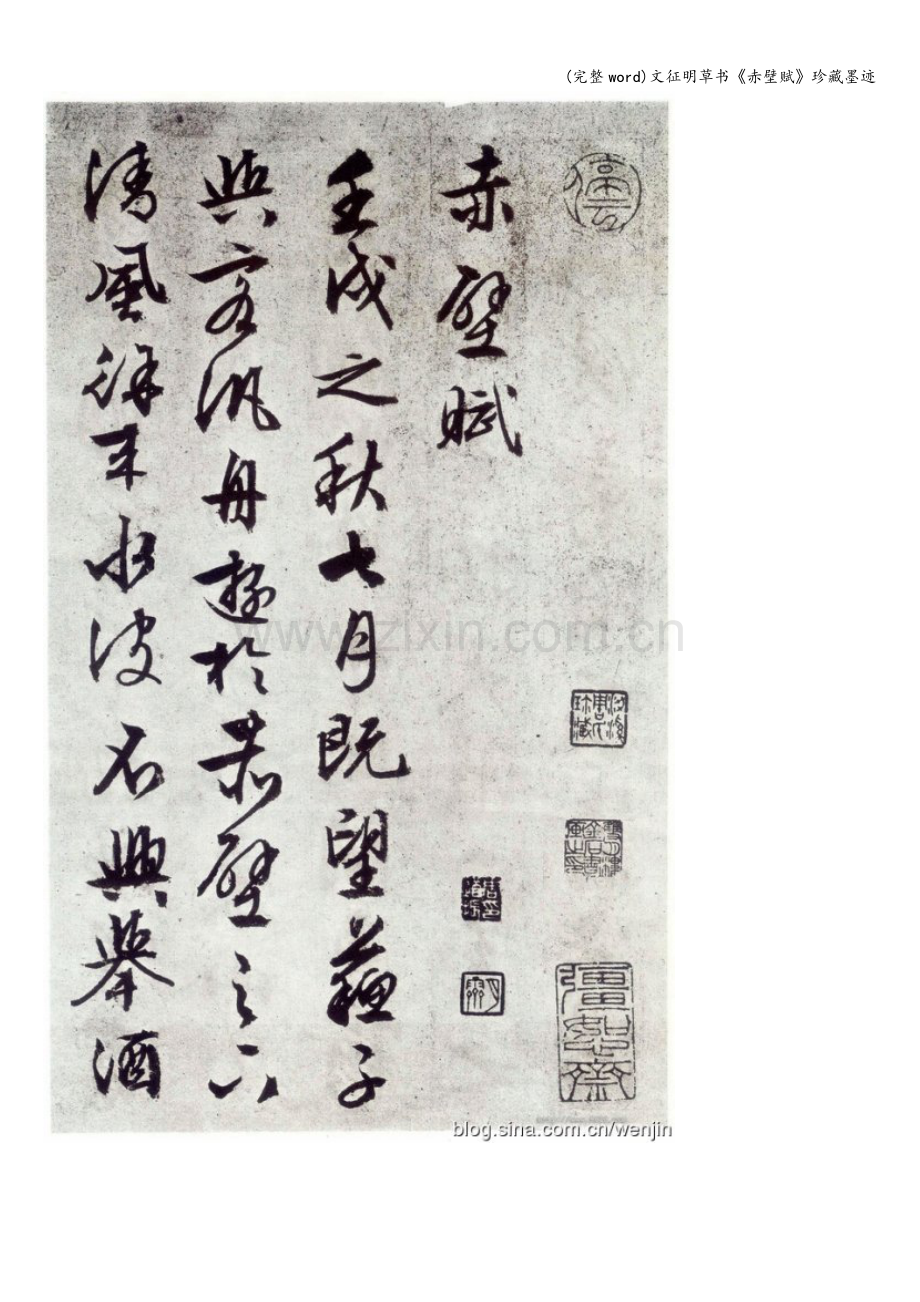 (完整word)文征明草书《赤壁赋》珍藏墨迹
停雲
彊恕齋
赤壁賦
壬戌之秋七月既望蘇子
與客汎舟遊於赤壁之下
清風徐来水波不興舉酒
www.zixin.com.cn
blog.sina.com.cn/wenjin